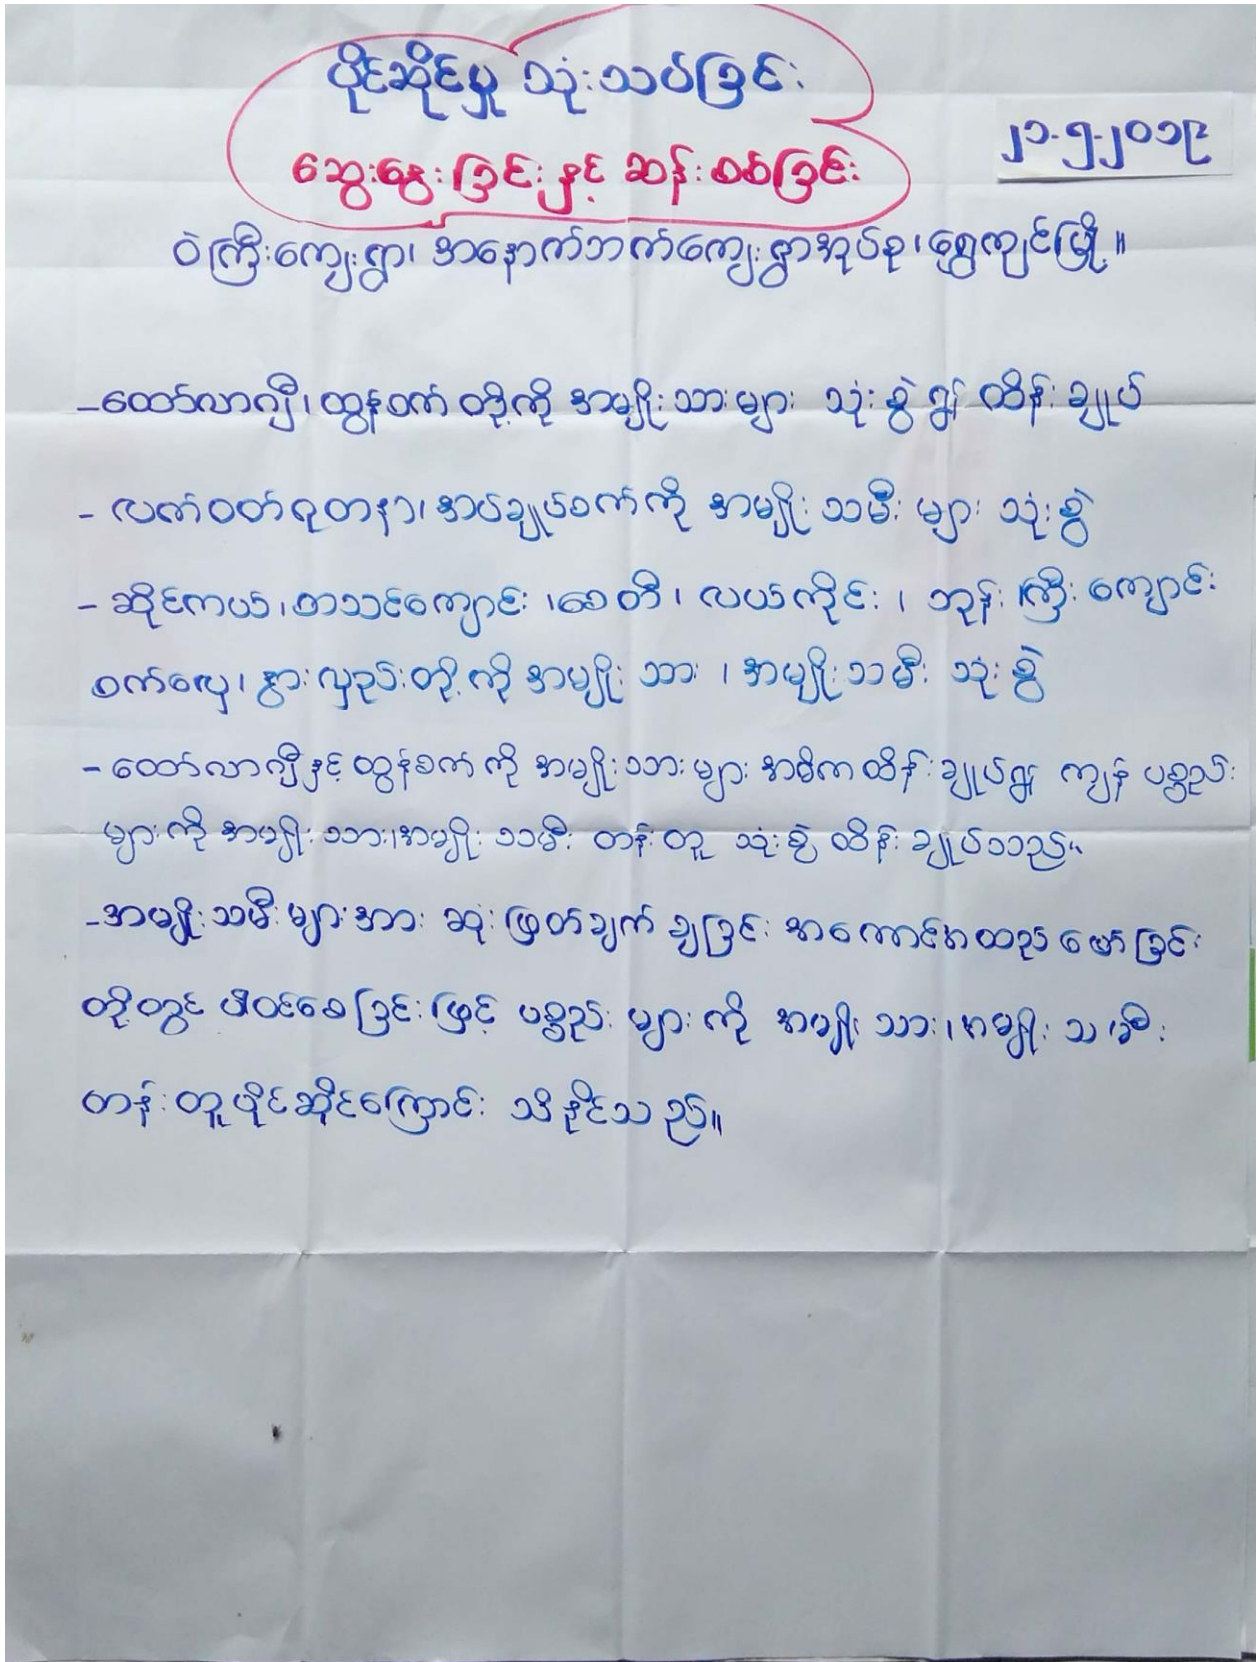 ပိုင်ဆိုင်မှု သုံးသပ်ခြင်း
ဆွေးနွေးခြင်းနှင့် ဆန်းစစ်ခြင်း
၂၁-၅-၂၀၁၉
ဝဲကြီးကျေးရွာ၊ အနောက်ဘက်ကျေးရွာအုပ်စု၊ ရွှေကျင်မြို့။
-ထော်လာဂျီ၊ ထွန်စက် တို့ကို အမျိုးသားများ သုံးစွဲ၍ ထိန်းချုပ်
- လက်ဝတ်ရတနာ၊ အပ်ချုပ်စက်ကို အမျိုးသမီးများ သုံးစွဲ
- ဆိုင်ကယ်၊ စာသင်ကျောင်း၊ စေတီ၊ လယ်ကိုင်း၊ ဘုန်းကြီးကျောင်း
စက်လှေ၊ နွားလှည်းတို့ကို အမျိုးသား၊ အမျိုးသမီး သုံးစွဲ
- ထော်လာဂျီနှင့် ထွန်စက် ကို အမျိုးသားများ အဓိကထိန်းချုပ်၍ ကျန် ပစ္စည်း
များကို အမျိုးသား၊ အမျိုးသမီး တန်းတူ သုံးစွဲ ထိန်းချုပ်သည်။
-အမျိုးသမီးများအား ဆုံးဖြတ်ချက် ချခြင်း အကောင်အထည် ဖော်ခြင်း
တို့တွင် ပါဝင်စေခြင်းဖြင့် ပစ္စည်းများကို အမျိုးသား၊ အမျိုးသမီး
တန်းတူပိုင်ဆိုင်ကြောင်း သိနိုင်သည်။